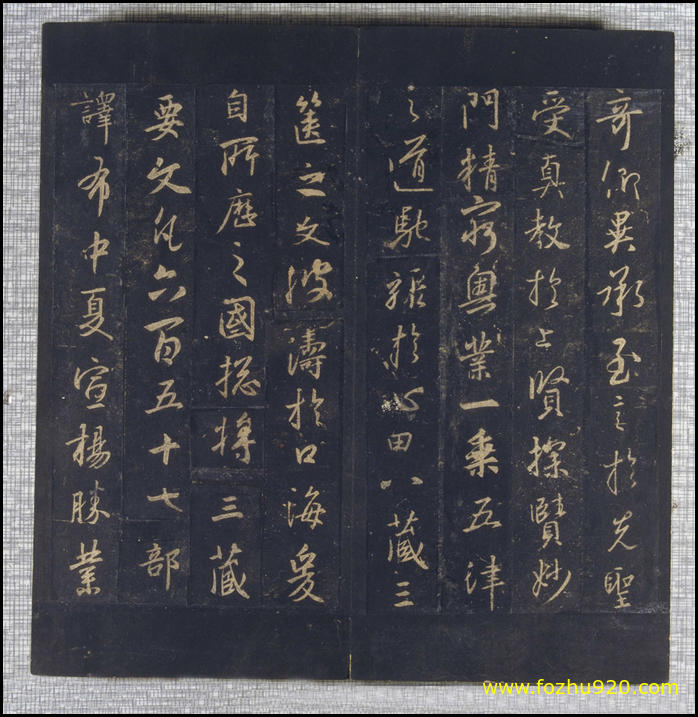 奇仰異承至言於先聖
受真教於上賢探賾妙
門精窮奧業一乘五律
之道馳驟於心田八藏三
篋之文波濤於口海爰
自所歷之國總將三藏
要文凡六百五十七部
譯布中夏宣揚勝業
www.fozhu920.com